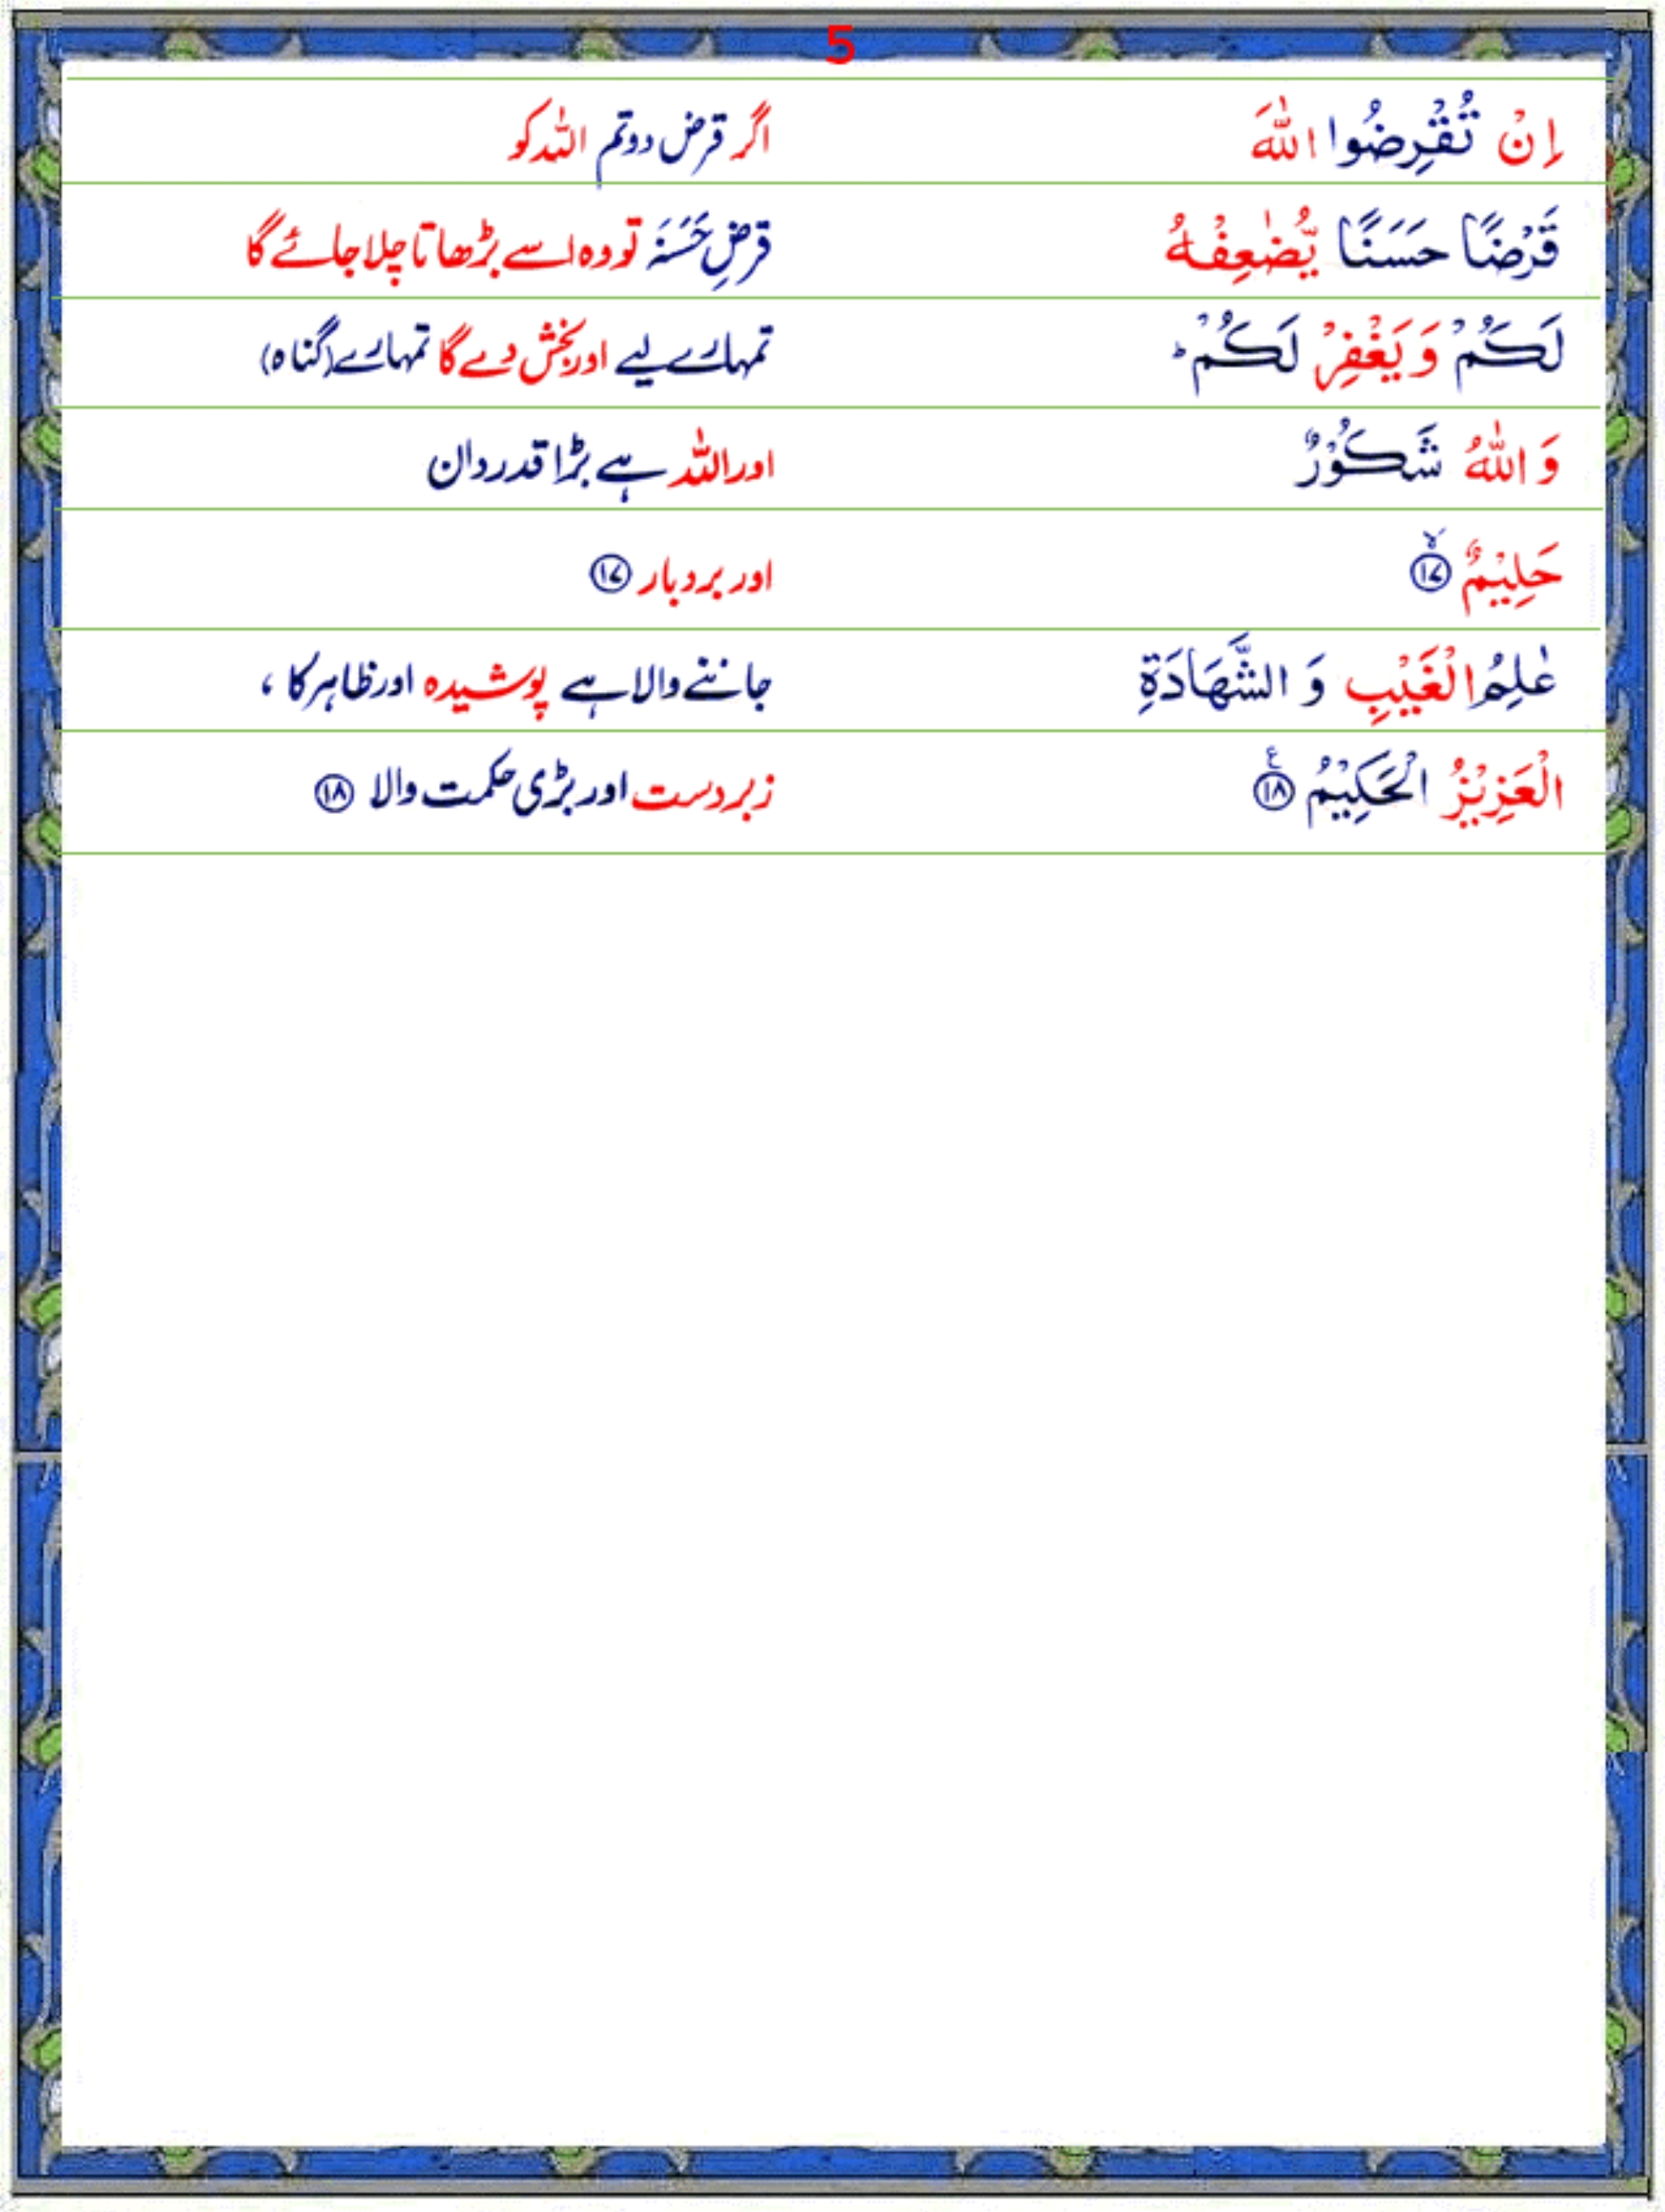 5
اِنْ تُقْرِضُوا اللّٰهَ اگر قرض دو تم اللہ کو
قَرْضًا حَسَنًا يُّضٰعِفْهُ قرضِ حَسَنَہ تو وہ اسے بڑھاتا چلا جائے گا
لَكُمْ وَ يَغْفِرْ لَكُمْ ؕ تمہارے لیے اور بخش دے گا تمہارے (گناہ)
وَ اللّٰهُ شَكُوْرٌ اور اللہ ہے بڑا قدردان
حَلِيْمٌ ۙ﴿۱۷﴾ اور بردبار ﴿۱۷﴾
عٰلِمُ الْغَيْبِ وَ الشَّهَادَةِ جاننے والا ہے پوشیدہ اور ظاہر کا ،
الْعَزِيْزُ الْحَكِيْمُ ﴿۱۸﴾ ع زبردست اور بڑی حکمت والا ﴿۱۸﴾